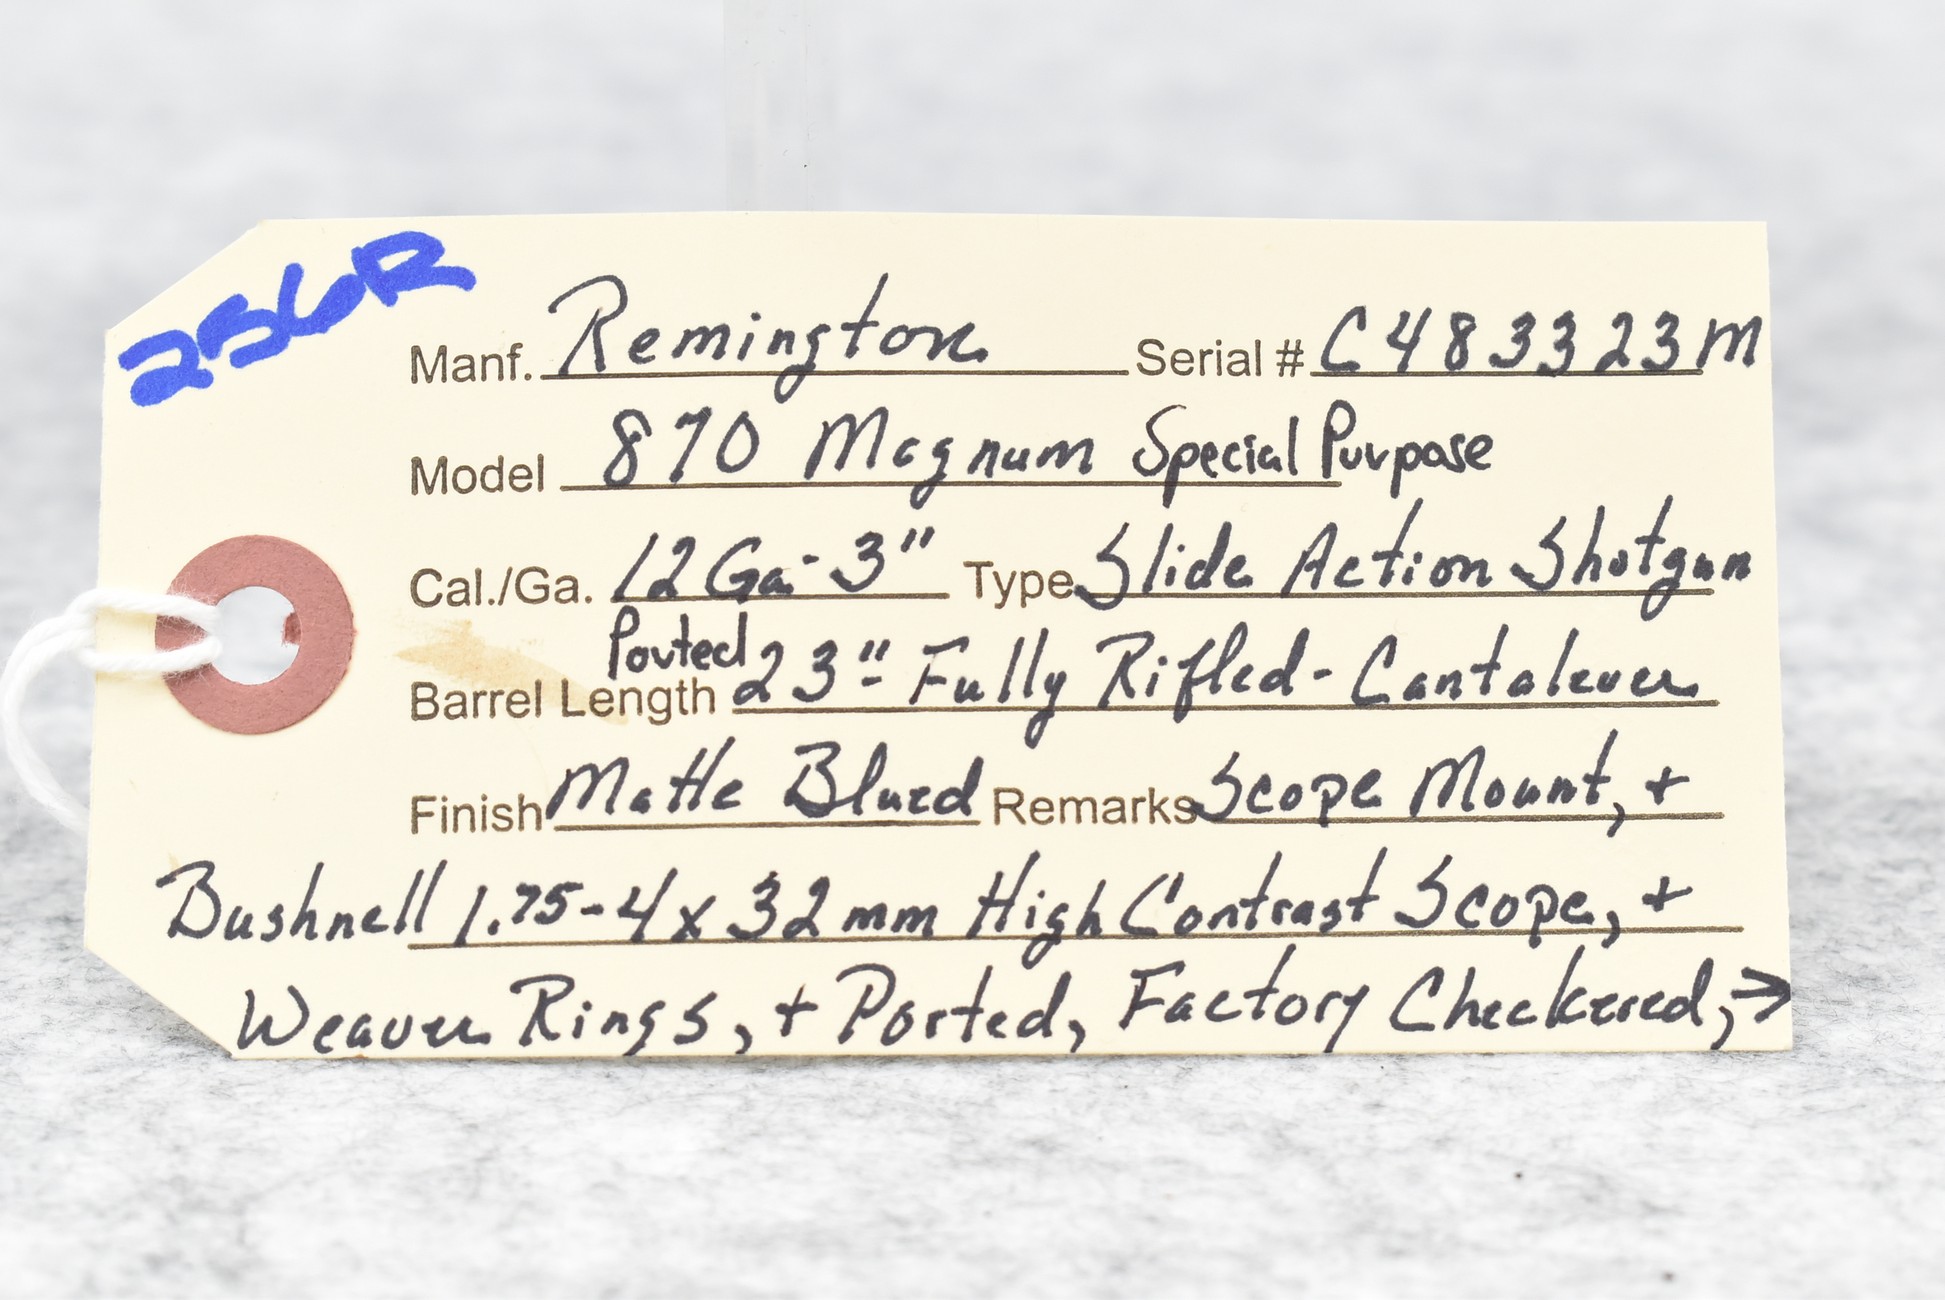 256R
Manf. Remington Serial # C483323M
Model 870 Magnum Special Purpose
Cal./Ga. 12 Ga - 3" Type Slide Action Shotgun
Ported
Barrel Length 23" - Fully Rifled - Cantalever
Finish Matte Blued Remarks Scope Mount, +
Bushnell 1.75-4x32mm High Contrast Scope, +
Weaver Rings, + Ported, Factory Checkered, →